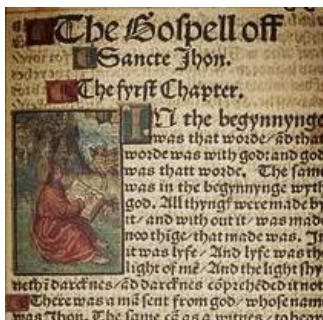 The Gospell off
Sancte Jhon.
The fyrst Chapter.
IN the begynnynge
was that worde/ ād that
worde was with god: and god
was thatt worde. The same
was in the begynnynge wyth
god. All thyngs weremade by
it/ and with out it/ was made
noo thīge/ that made was. In
it was lyfe/ And lyfe was the
light of mē/ And the light shy
neth ī darcknes/ ād darcknes cōprehēded it not
There was a mā sent from god/ whose name
was Jhon. The same cā as a witnes/ to bear